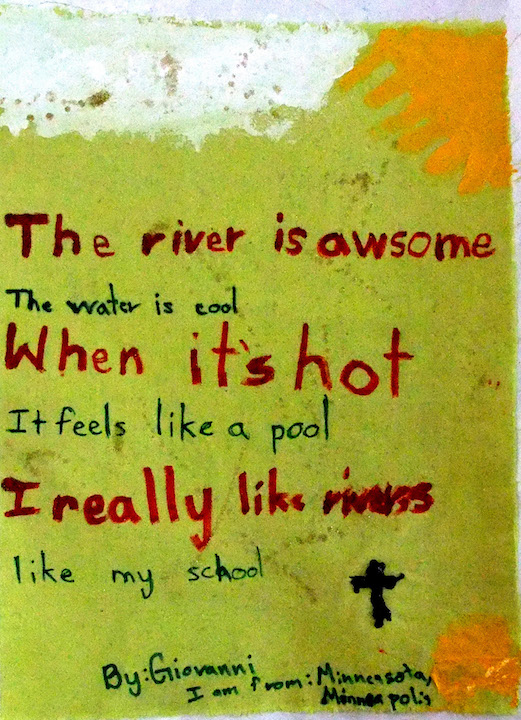 The river is awsome
The water is cool
When it's hot
It feels like a pool
I really like rivers
like my school
By: Giovanni
I am from: Minnesota,
Minneapolis